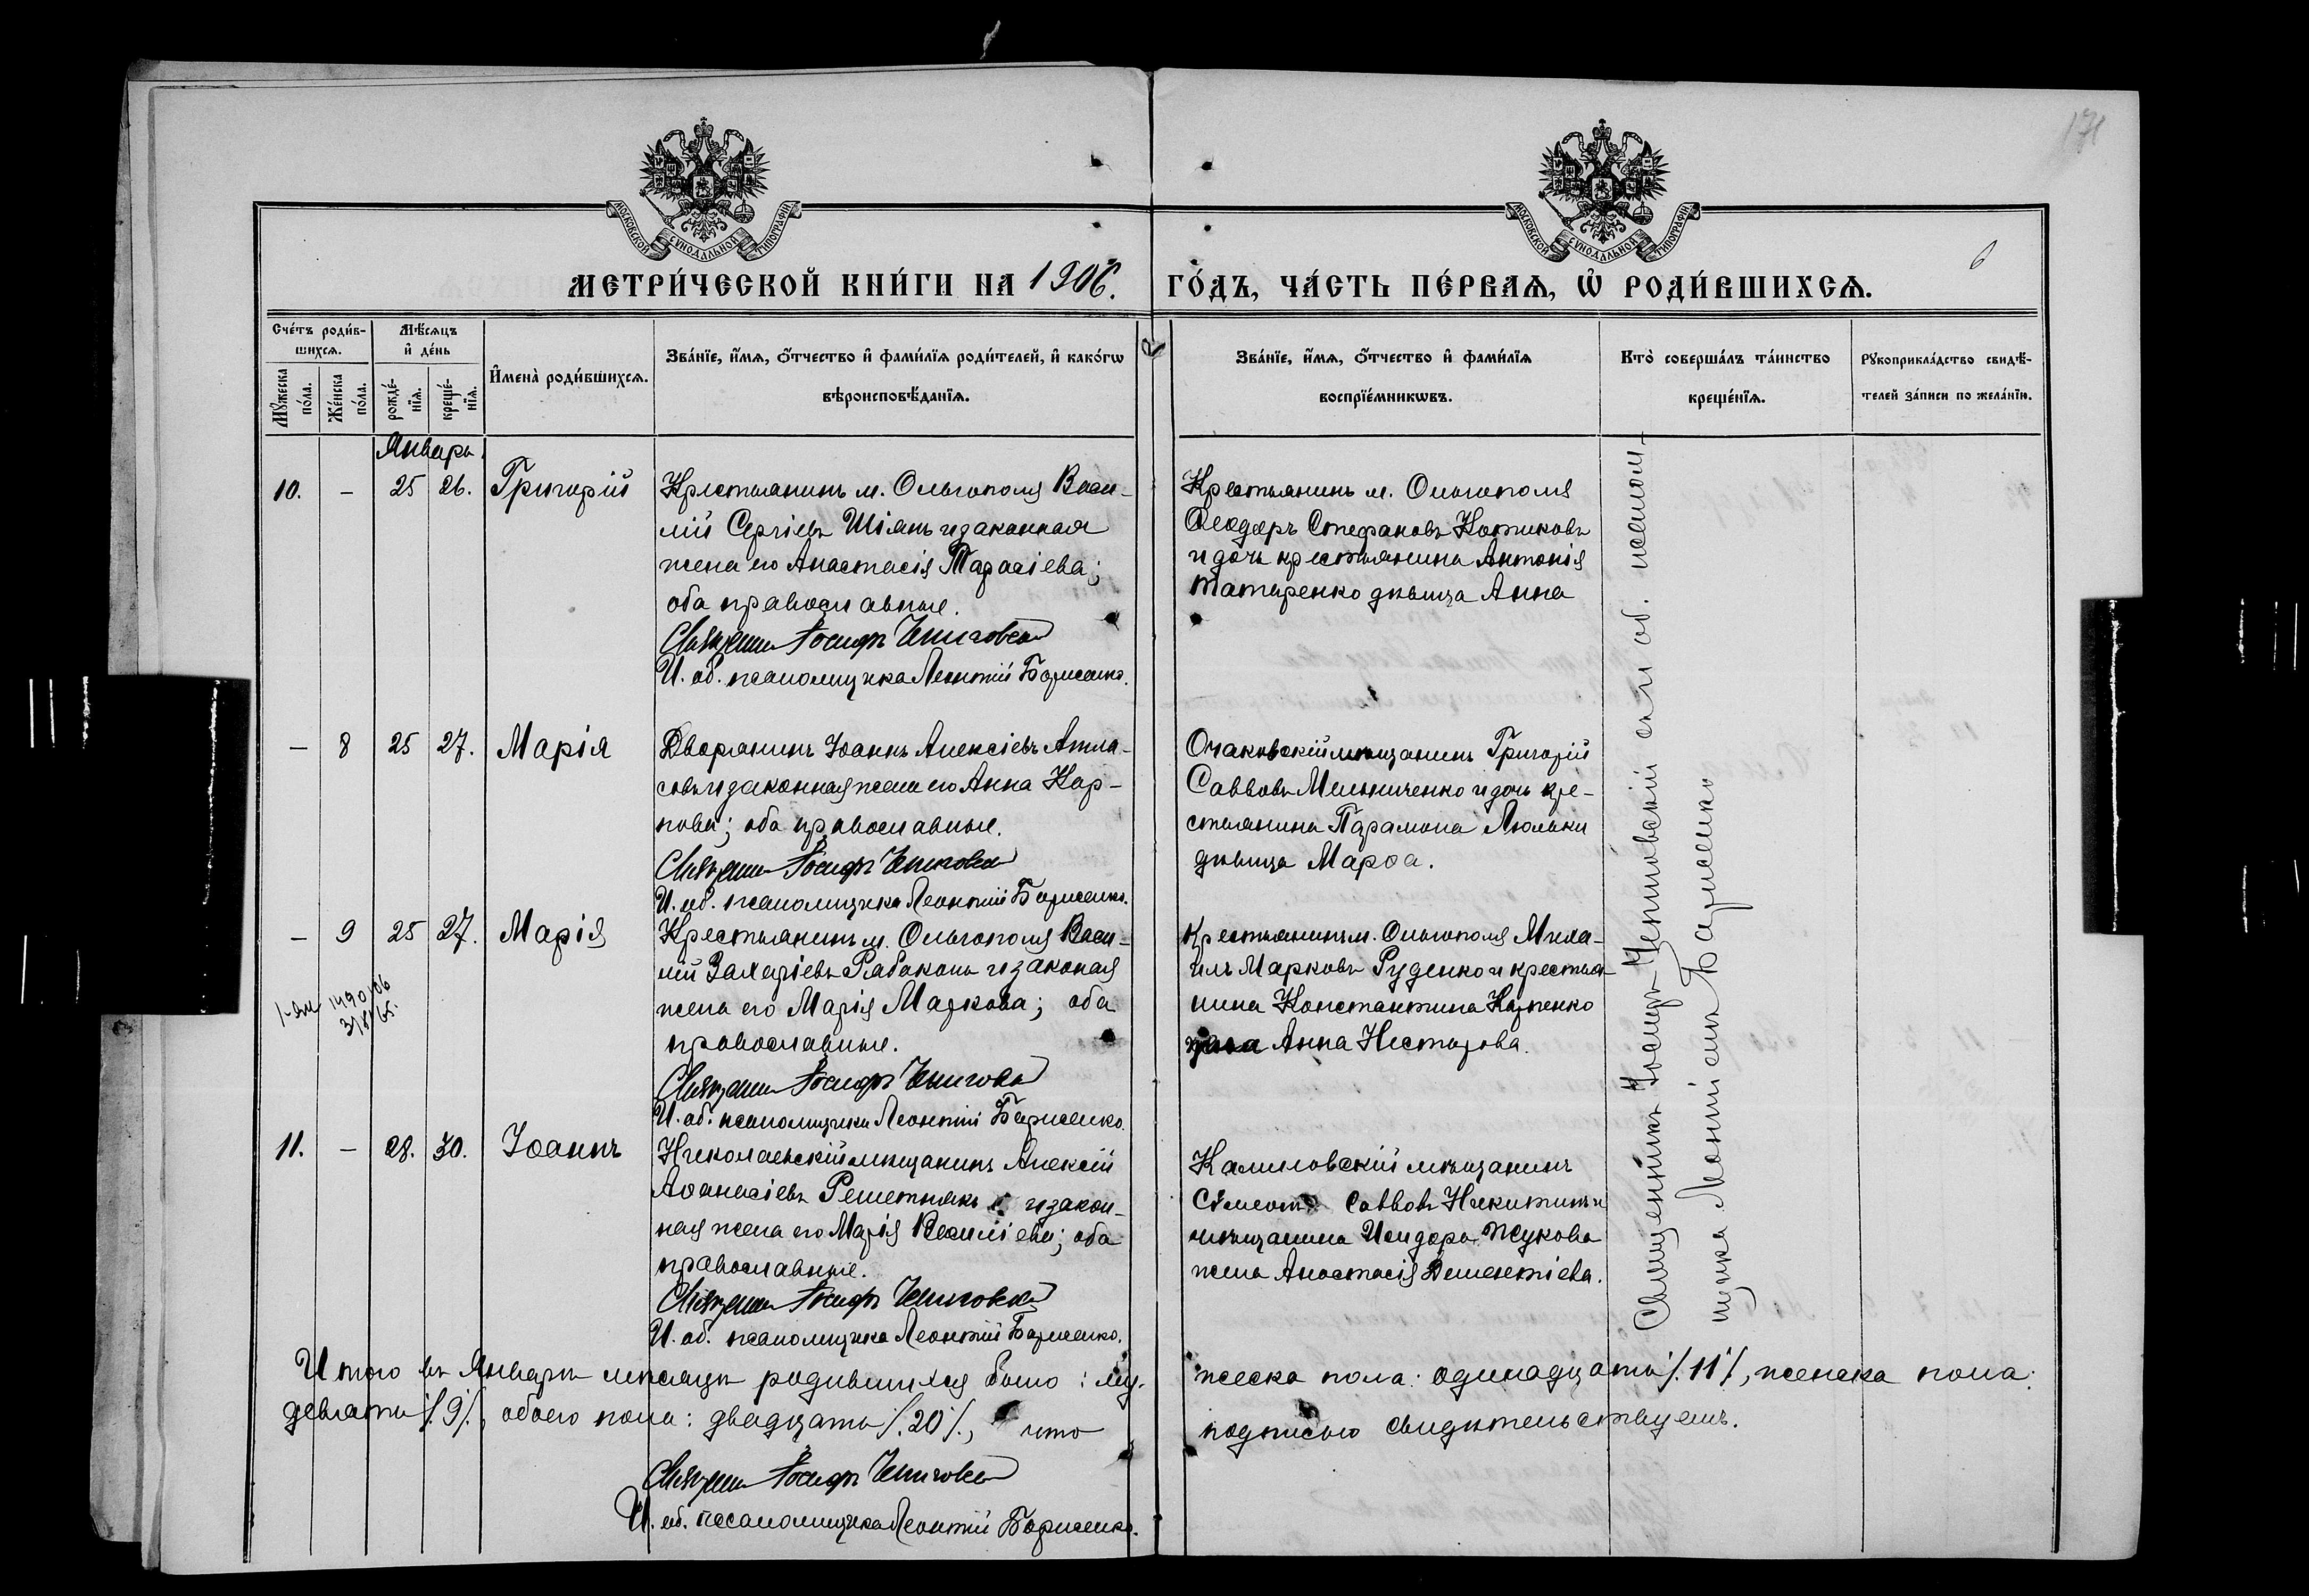 171
6
МОСКОВСКОЙ СѴНОДАЛЬНОЙ ТИПОГРАФІИ
МОСКОВСКОЙ СѴНОДАЛЬНОЙ ТИПОГРАФІИ
МЕТРИ́ЧЕСКОЙ КНИ́ГИ НА 1906. ГО́ДЪ, ЧА́СТЬ ПЕ́РВАѦ, Ѡ҆ РОДИ́ВШИХСѦ.
Сче́тъ роди́в-
шихсѧ.
Мꙋ́жеска по́ла.
Же́нска по́ла.
Мѣ́сѧцъ
и҆ де́нь
рожде́-
нїѧ.
креще́-
нїѧ.
И҆мена̀ роди́вшихсѧ.
Зва́нїе, и҆́мѧ, ѻ҆́тчество и҆ фами́лїѧ роди́телей, и҆ како́гѡ
вѣроисповѣ́данїѧ.
Зва́нїе, и҆́мѧ, ѻ҆́тчество и҆ фами́лїѧ
воспрїе́мникѡвъ.
Кто̀ соверша́лъ та́инство
креще́нїѧ.
Рꙋкоприкла́дство свидѣ́-
телей за́писи по жела́нїю.
Январь.
10. — 25 26. Григорій
Крестьянинъ м. Ольгополя Васи-
лій Сергіевъ Шіянъ и законная
жена его Анастасія Тарасіева;
оба православные.
Священникъ Іосифъ
И. об. псаломщика Леонтій Борисенко.
Крестьянинъ м. Ольгополя
Ѳеодоръ Стефановъ Котиковъ
и дочь крестьянина Антонія
Татаренко дѣвица Анна
— 8 25 27. Марія
Дворянинъ Іоаннъ Алексіевъ Атла-
совъ и законная жена его Анна Кар-
пова; оба православные.
Священникъ Іосифъ
И. об. псаломщика Леонтій Борисенко.
Очаковскій мѣщанинъ Григорій
Саввовъ Мельниченко и дочь кре-
стьянина Парамона Люльки
дѣвица Марѳа.
— 9 25 27. Марія
1490/06
3/8/65.
Крестьянинъ м. Ольгополя Васи-
лій Захаріевъ Рабаконь и законая
жена его Марія Маркова; оба
православные.
Священникъ Іосифъ
И. об. псаломщика Леонтій Борисенко.
Крестьянинъ м. Ольгополя Миха-
илъ Марковъ Руденко и крестья-
нина Константина Карпенко
жена Анна Несторова.
11. — 28. 30. Іоаннъ
Николаевскій мѣщанинъ Алексій
Аѳанасіевъ Решетнякъ и закон-
ная жена его Марія Василіева; оба
православные.
Священникъ Іосифъ
И. об. псаломщика Леонтій Борисенко.
мѣщанинъ
Сѵмеонъ Саввовъ Никитинъ и
мѣщанина Исидора Жукова
жена Анастасія Дементіева.
Священникъ Іосифъ и об. псалом-
щика Леонтій Борисенко
Итого въ Январѣ мѣсяцѣ родившихся было: му- жеска пола: одинадцать /.11/., женска пола:
девять /.9/., обоего пола: двадцать /.20/., что подписью свидѣтельствуемъ.
Священникъ Іосифъ
И. об. псаломщика Леонтій Борисенко.